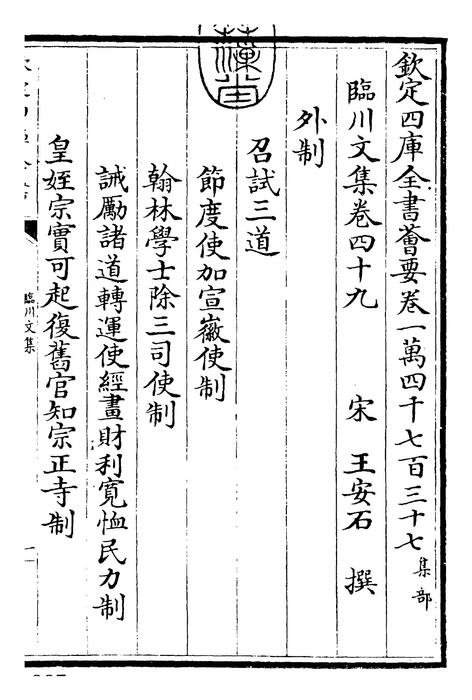 欽定四庫全書薈要卷一萬四千七百三十七 集部
臨川文集卷四十九 宋 王安石 撰
外制
召試三道
節度使加宣徽使制
翰林學士除三司使制
誡勵諸道轉運使經畫財利寛恤民力制
皇姪宗實可起復舊官知宗正寺制
臨川文集